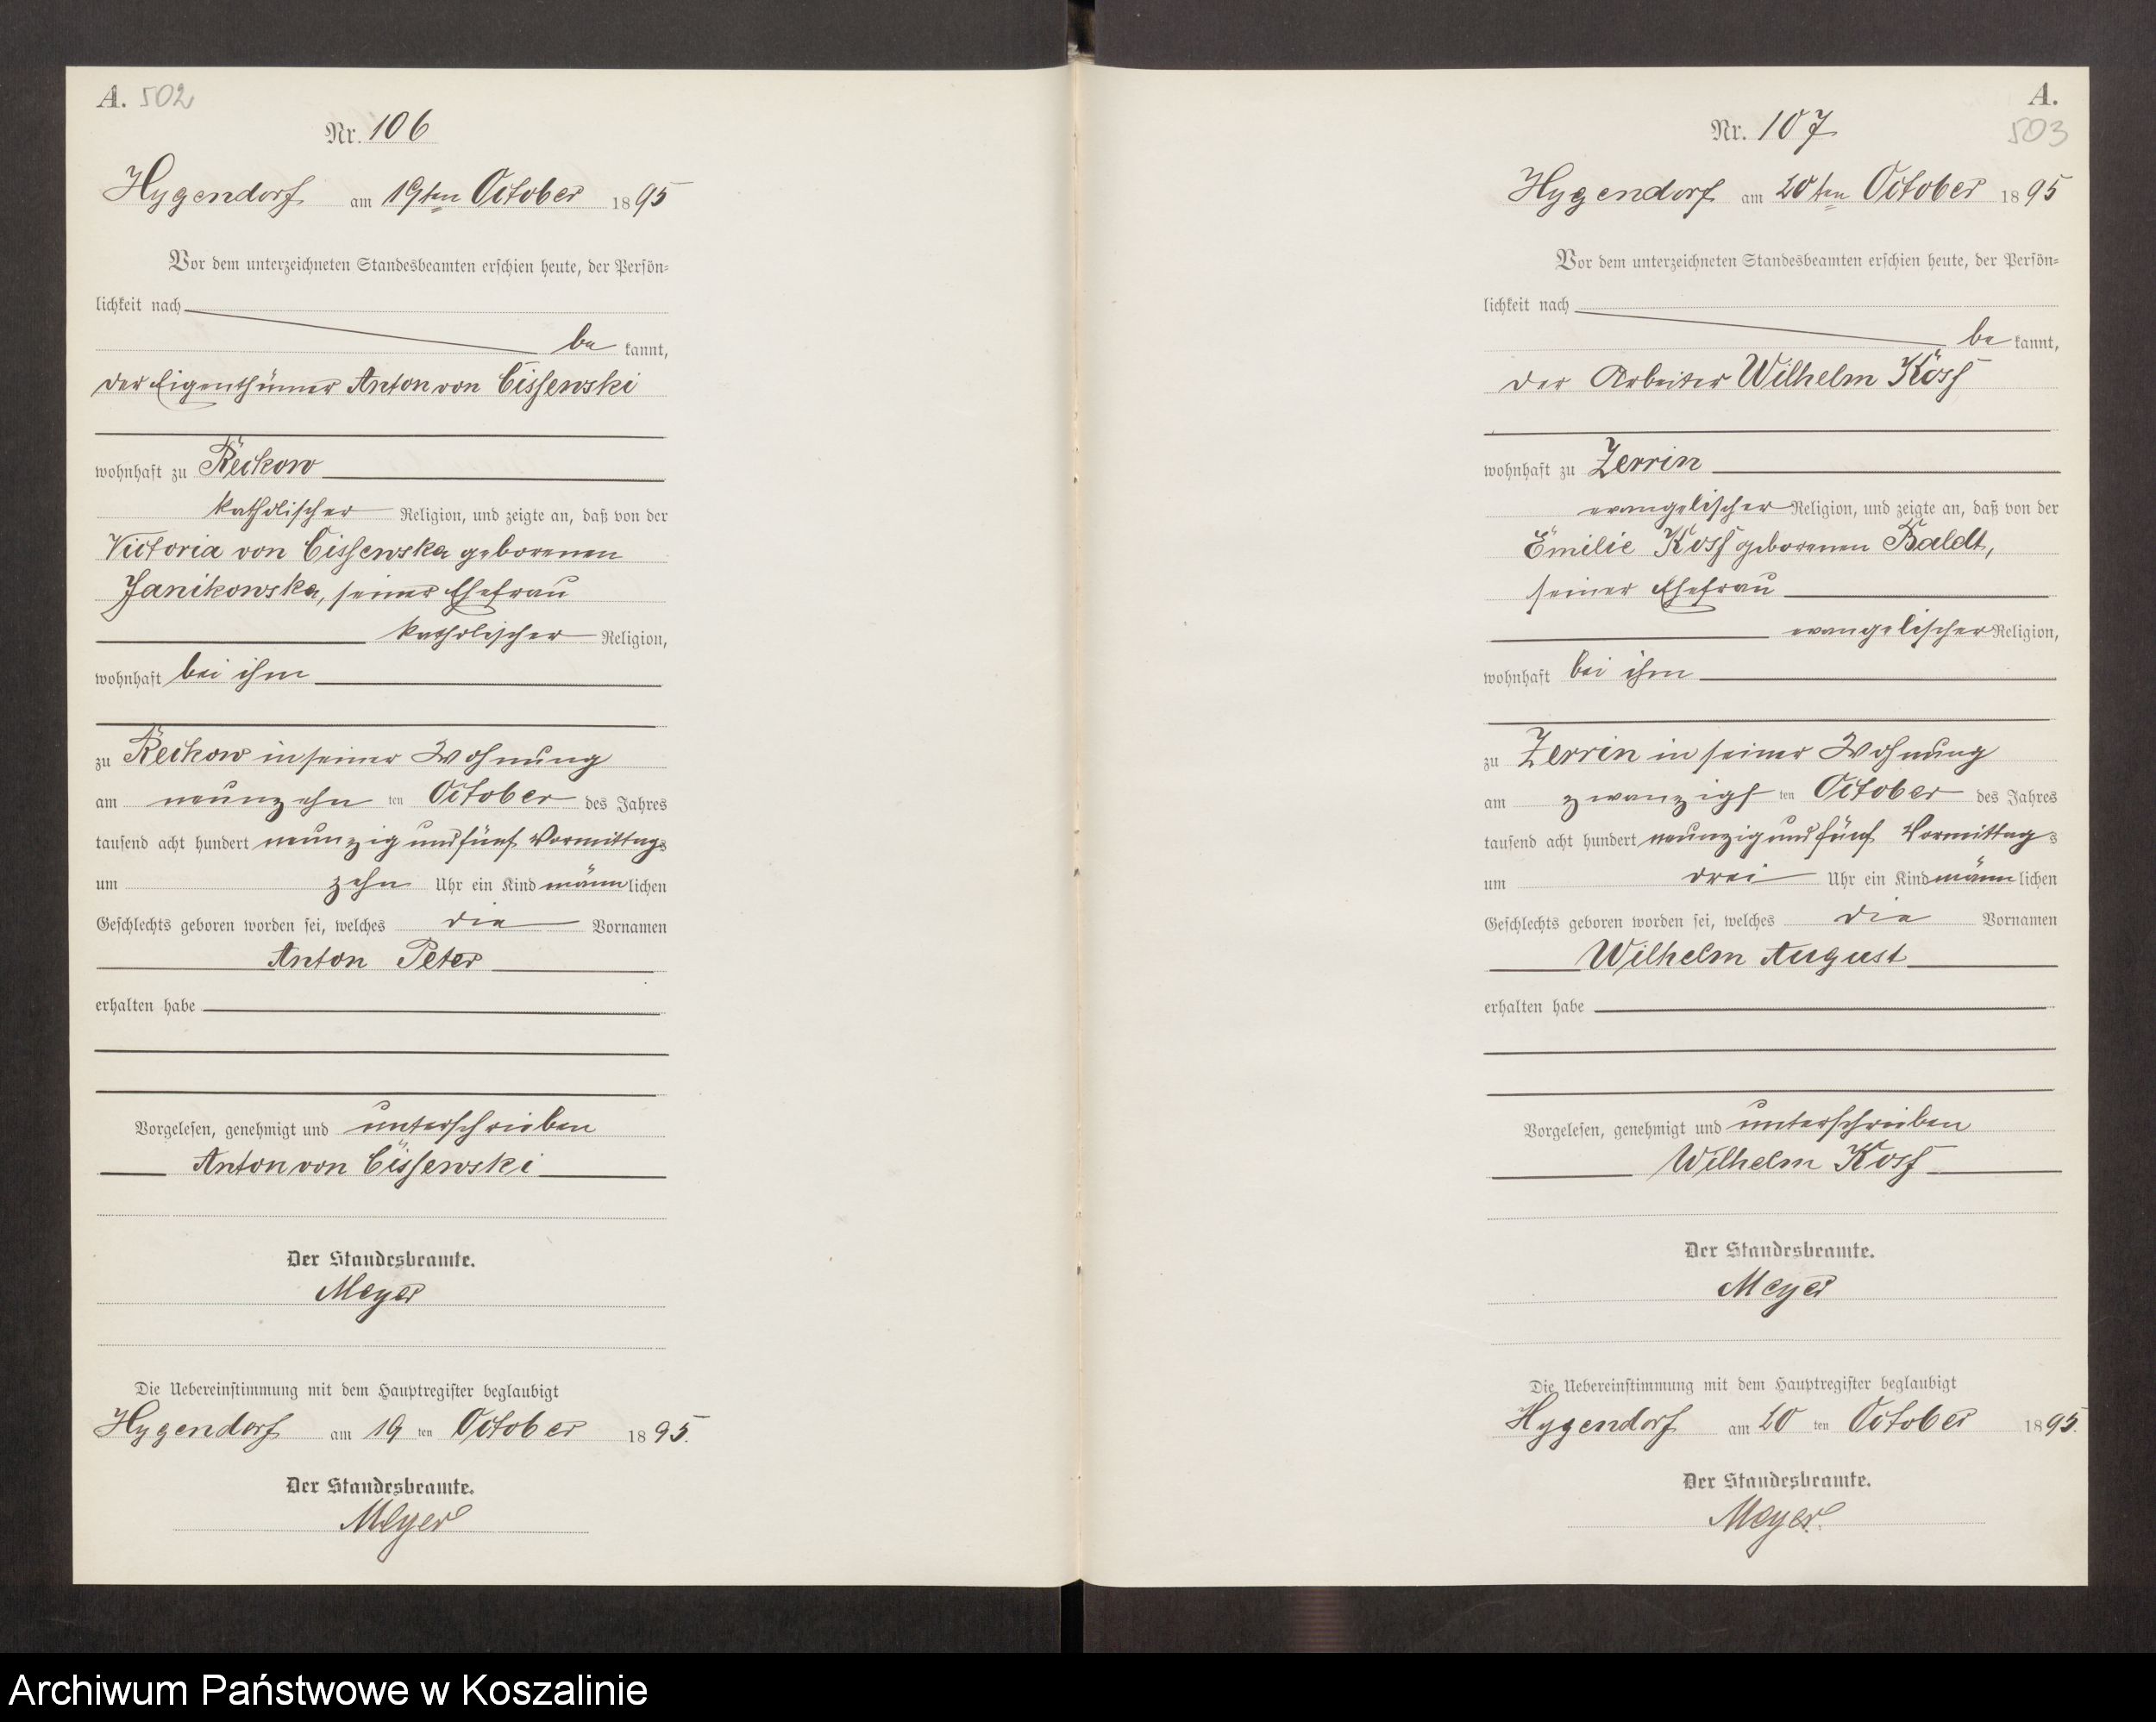 A. 502
Nr. 106
Hygendorf am 19ten October 1895
Vor dem unterzeichneten Standesbeamten erschien heute, der Persön-
lichkeit nach
be kannt,
der Eigenthümer Anton von Cissewski
wohnhaft zu Reckow
katholischer Religion, und zeigte an, daß von der
Victoria von Cissewska geborenen
Janikowska, seiner Ehefrau
katholischer Religion,
wohnhaft bei ihm
zu Reckow in seiner Wohnung
am neunzehn ten October des Jahres
tausend acht hundert neunzig und fünf Vormittags
um zehn Uhr ein Kind männlichen
Geschlechts geboren worden sei, welches die Vornamen
Anton Peter
erhalten habe
Vorgelesen, genehmigt und unterschrieben
Anton von Cissewski
Der Standesbeamte.
Meyer
Die Uebereinstimmung mit dem Hauptregister beglaubigt
Hygendorf am 19 ten October 1895.
Der Standesbeamte.
Meyer
A.
503
Nr. 107
Hygendorf am 20ten October 1895
Vor dem unterzeichneten Standesbeamten erschien heute, der Persön-
lichkeit nach
be kannt,
der Arbeiter Wilhelm Koss
wohnhaft zu Zerrin
evangelischer Religion, und zeigte an, daß von der
Emilie Koss geborenen Baldt,
seiner Ehefrau
evangelischer Religion,
wohnhaft bei ihm
zu Zerrin in seiner Wohnung
am zwanzigs ten October des Jahres
tausend acht hundert neunzig und fünf Vormittags
um drei Uhr ein Kind männlichen
Geschlechts geboren worden sei, welches die Vornamen
Wilhelm August
erhalten habe
Vorgelesen, genehmigt und unterschrieben
Wilhelm Koss
Der Standesbeamte.
Meyer
Die Uebereinstimmung mit dem Hauptregister beglaubigt
Hygendorf am 20 ten October 1895.
Der Standesbeamte.
Meyer.
Archiwum Państwowe w Koszalinie